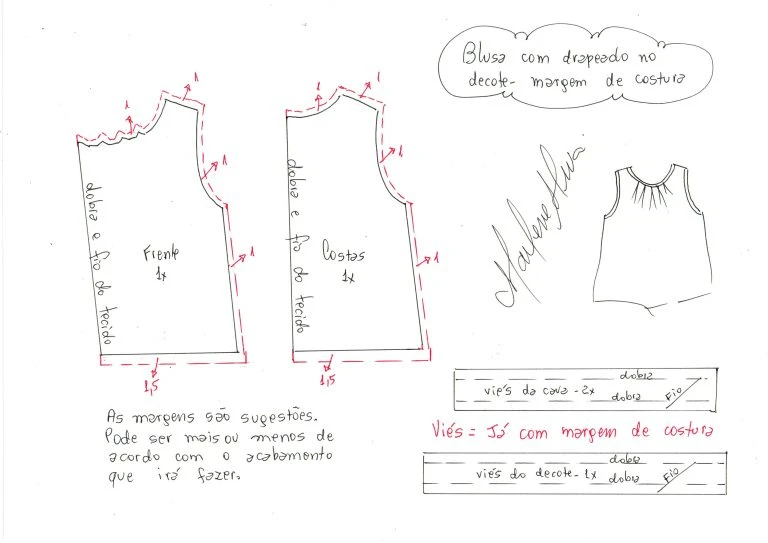 Blusa com drapeado no
decote - margem de costura
1
1
1
1
dobra e fio do tecido
Frente
1x
1,5
1
1
1
1
dobra e fio do tecido
Costas
1x
1,5
Marlene Mukai
As margens são sugestões.
Pode ser mais ou menos de
acordo com o acabamento
que irá fazer.
dobra
viés da cava - 2x dobra Fio
Viés = Já com margem de costura
dobra
viés do decote - 1x dobra Fio